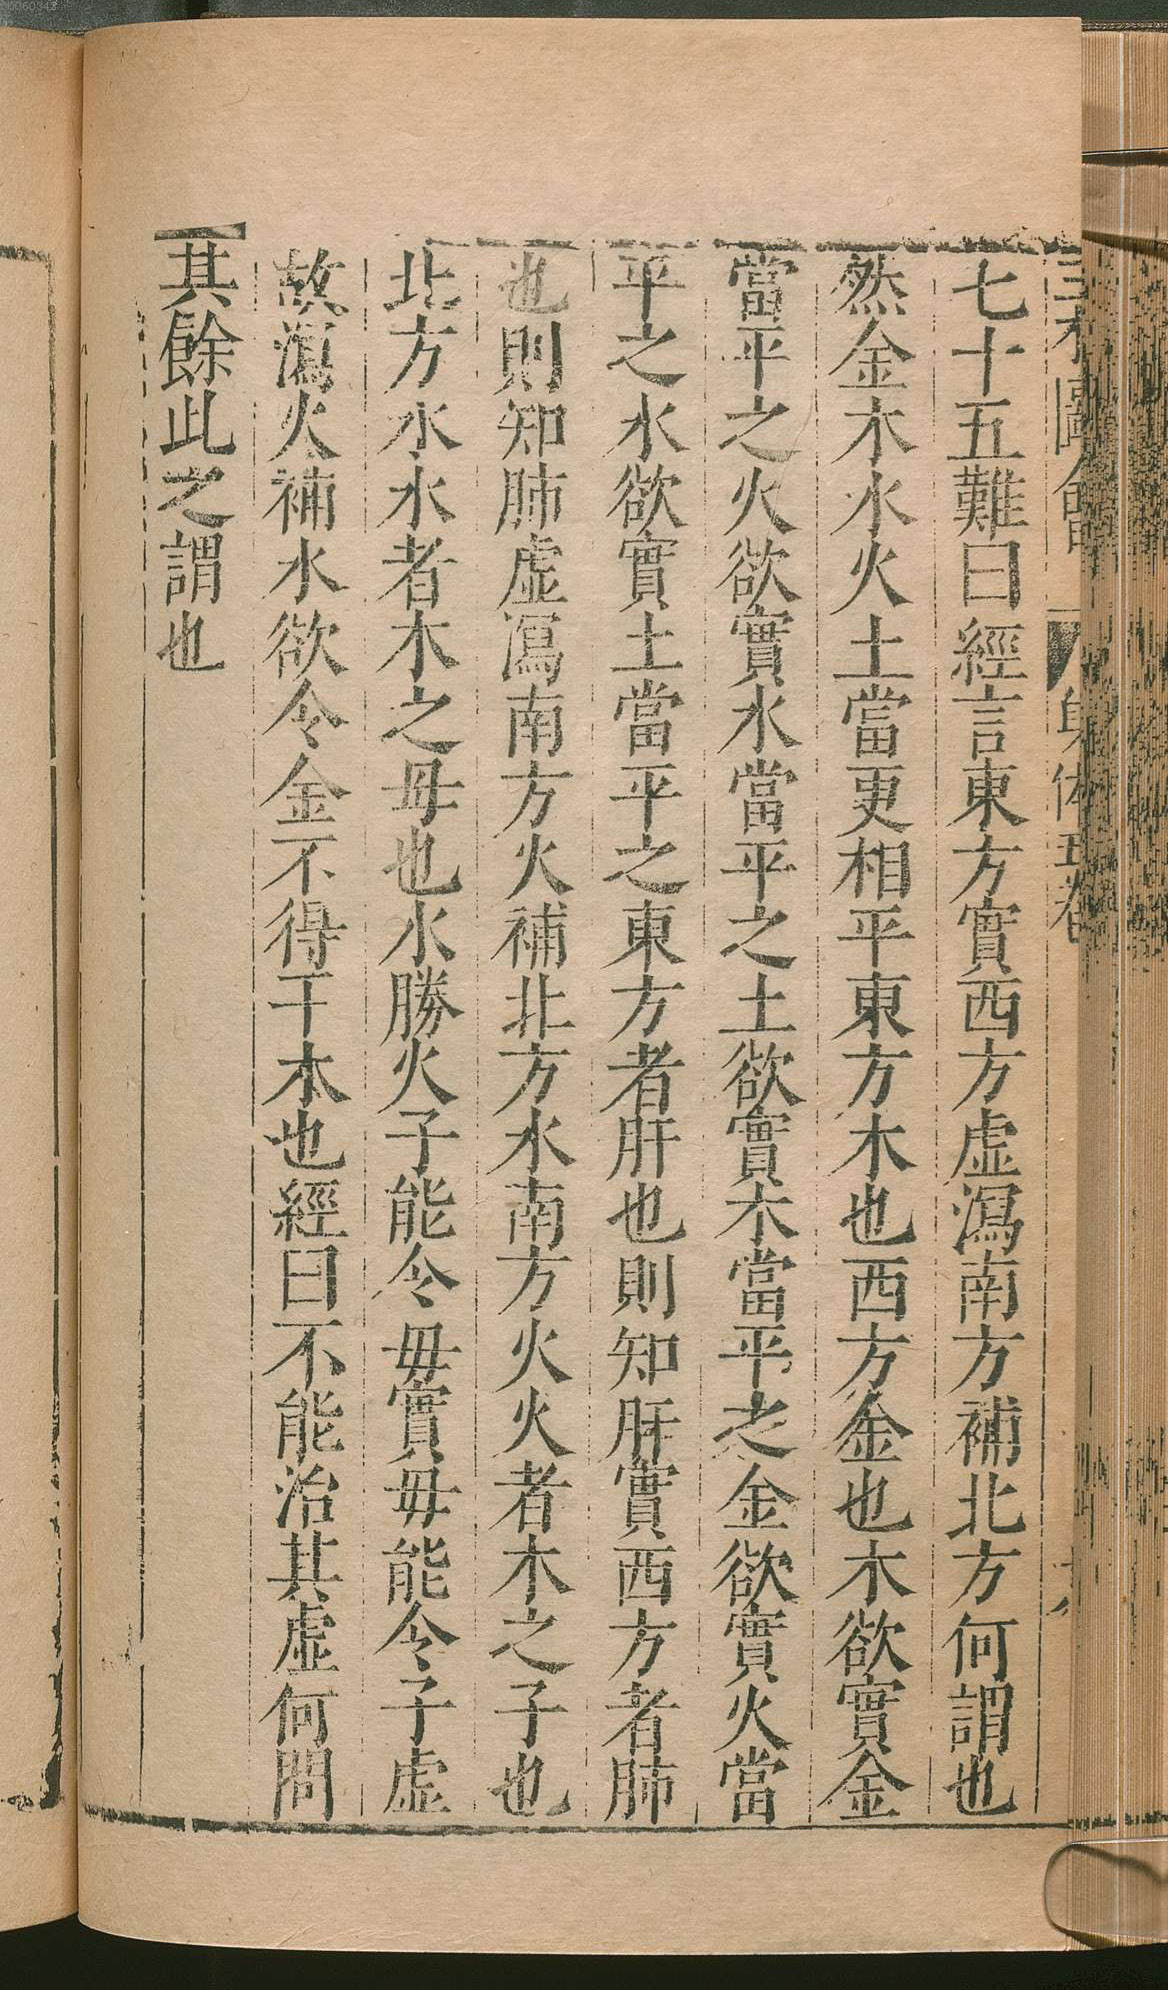 七十五難曰經言東方實西方虛瀉南方補北方何謂也
然金木水火土當更相平東方木也西方金也木欲實金
當平之火欲實水當平之土欲實木當平之金欲實火當
平之水欲實土當平之東方者肝也則知肝實西方者肺
也則知肺虛瀉南方火補北方水南方火火者木之子也
北方水水者木之母也水勝火子能令母實母能令子虛
故瀉火補水欲令金不得干木也經曰不能治其虛何問
其餘此之謂也
三才圖會 身体五卷
00060343